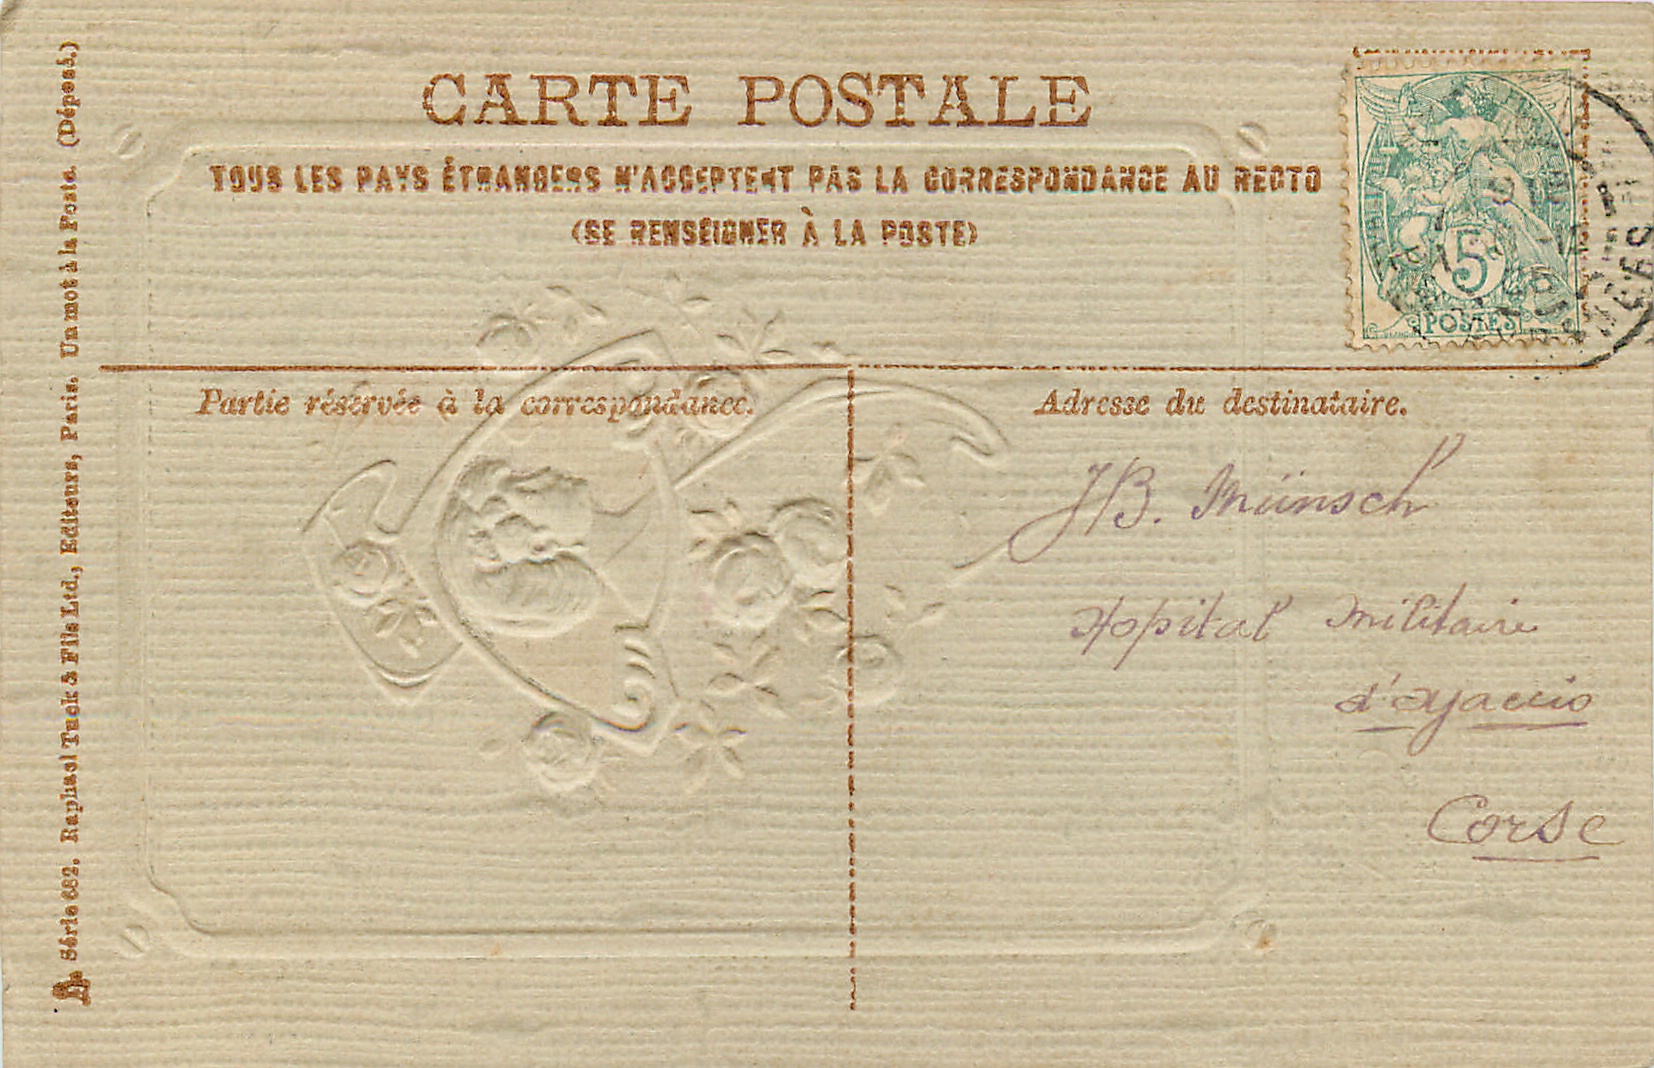 CARTE POSTALE
TOUS LES PAYS ÉTRANGERS N'ACCEPTENT PAS LA CORRESPONDANCE AU RECTO
(SE RENSEIGNER À LA POSTE)
5
POSTES
Partie réservée à la correspondance.
Adresse du destinataire.
JB. Münsch
Hopital Militaire
d'ajaccio
Corse
Série 682. Raphael Tuck & Fils Ltd., Editeurs, Paris. Un mot à la Poste. (Déposé.)